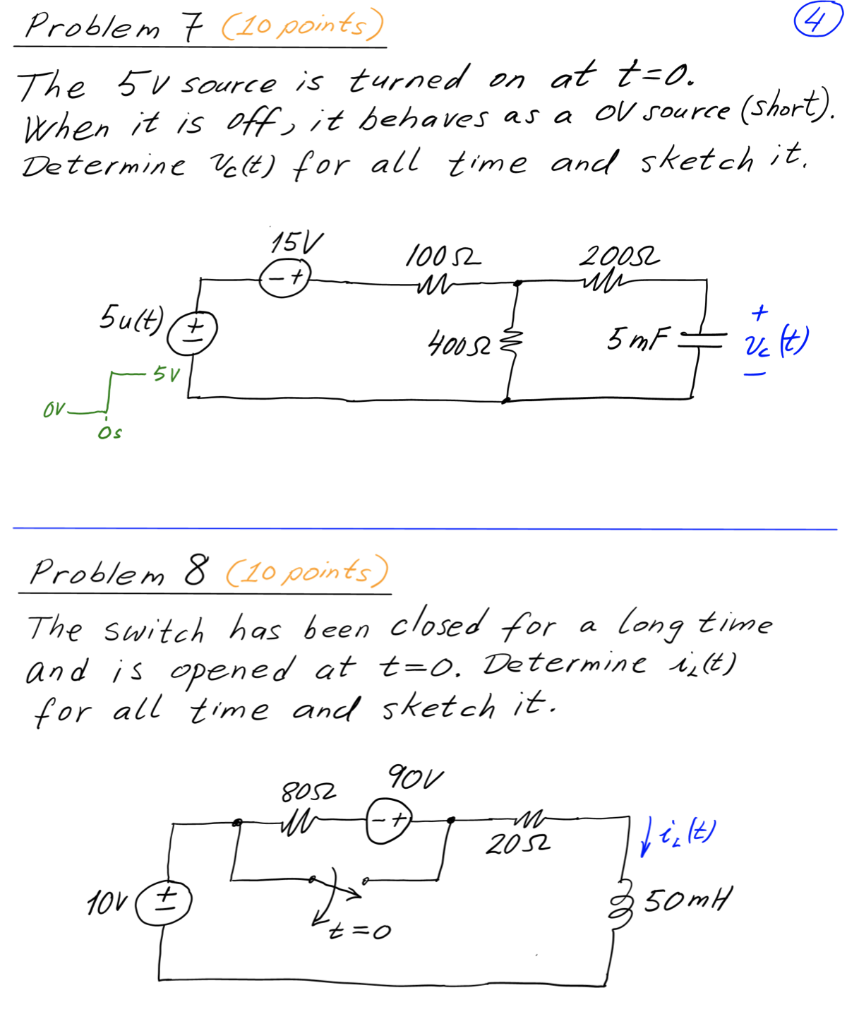 Problem 7 (10 points)
4
The 5V source is turned on at t=0.
When it is off, it behaves as a 0V source (short).
Determine v_c(t) for all time and sketch it.
15V
100Ω
200Ω
- +
5u(t)
±
400Ω
5mF
+
v_c(t)
–
5V
0V
0s
Problem 8 (10 points)
The switch has been closed for a long time
and is opened at t=0. Determine i_L(t)
for all time and sketch it.
90V
80Ω
- +
20Ω
i_L(t)
10V
±
50mH
t=0